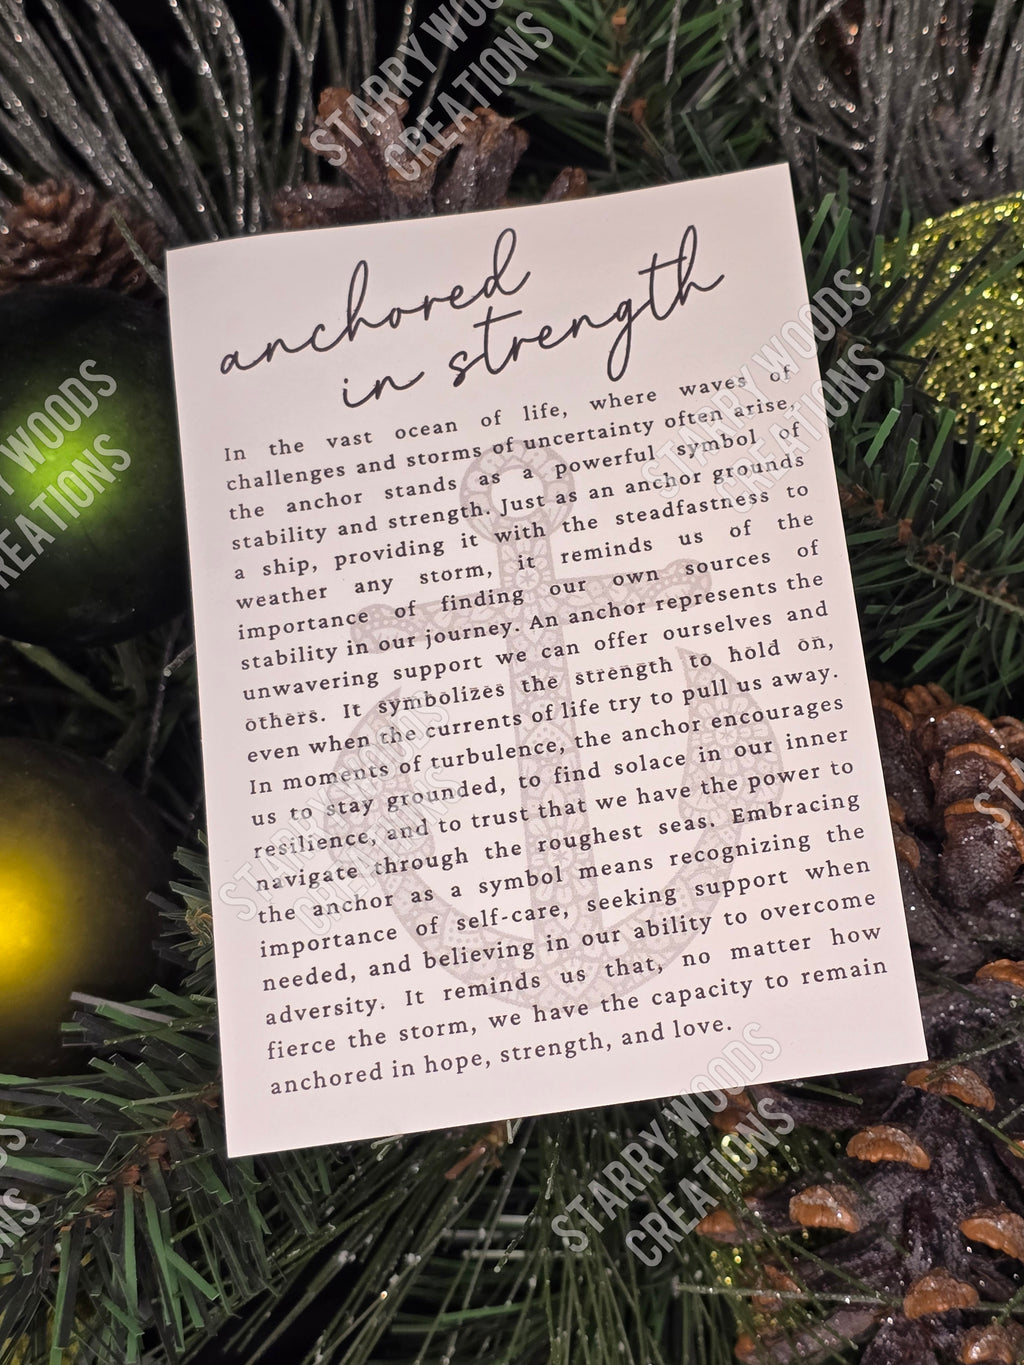 STARRY WOODS
CREATIONS
anchored
in strength
In the vast ocean of life, where waves of
challenges and storms of uncertainty often arise,
the anchor stands as a powerful symbol of
stability and strength. Just as an anchor grounds
a ship, providing it with the steadfastness to
weather any storm, it reminds us of the
importance of finding our own sources of
stability in our journey. An anchor represents the
unwavering support we can offer ourselves and
others. It symbolizes the strength to hold on,
even when the currents of life try to pull us away.
In moments of turbulence, the anchor encourages
us to stay grounded, to find solace in our inner
resilience, and to trust that we have the power to
navigate through the roughest seas. Embracing
the anchor as a symbol means recognizing the
importance of self-care, seeking support when
needed, and believing in our ability to overcome
adversity. It reminds us that, no matter how
fierce the storm, we have the capacity to remain
anchored in hope, strength, and love.
STARRY WOODS
CREATIONS
STARRY WOODS
CREATIONS
STARRY WOODS
CREATIONS
STARRY WOODS
CREATIONS
Y WOODS
CREATIONS